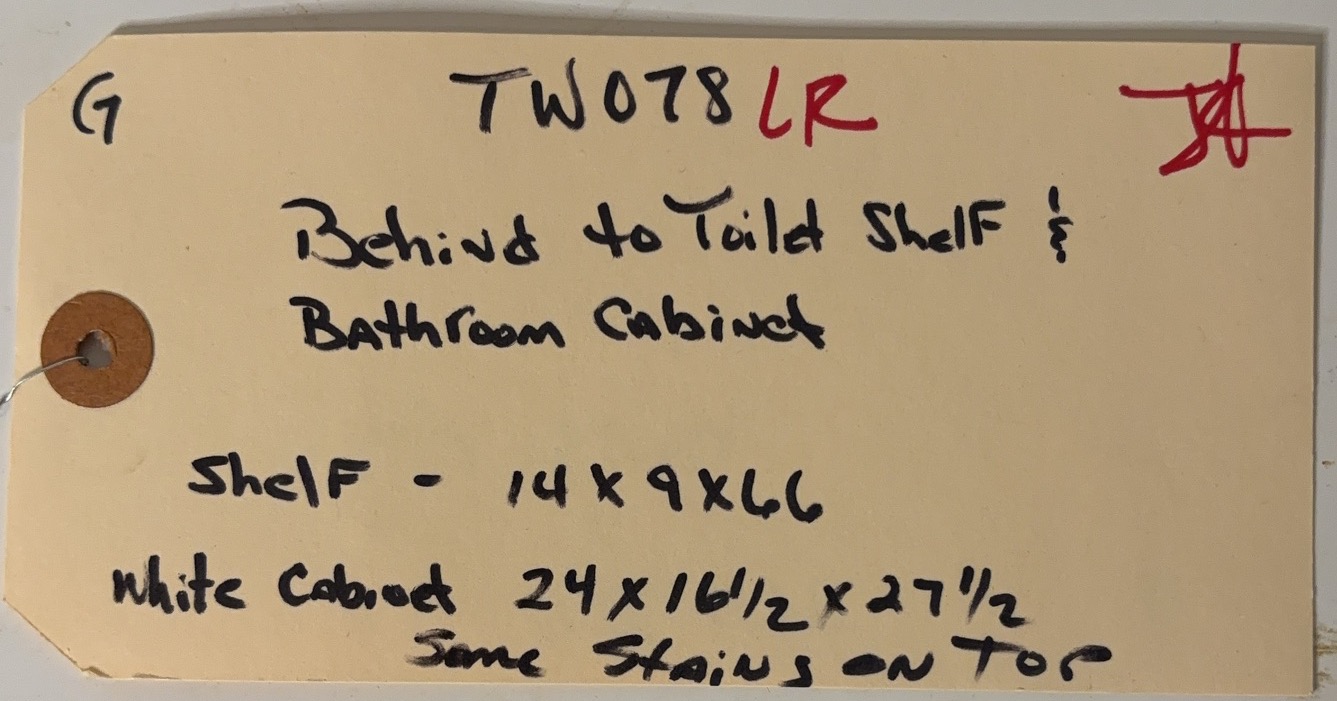 G TW078 LR
Behind to Toilet Shelf &
Bathroom Cabinet
Shelf - 14 x 9 x 66
White Cabinet 24 x 16 1/2 x 27 1/2
Some Stains on Top